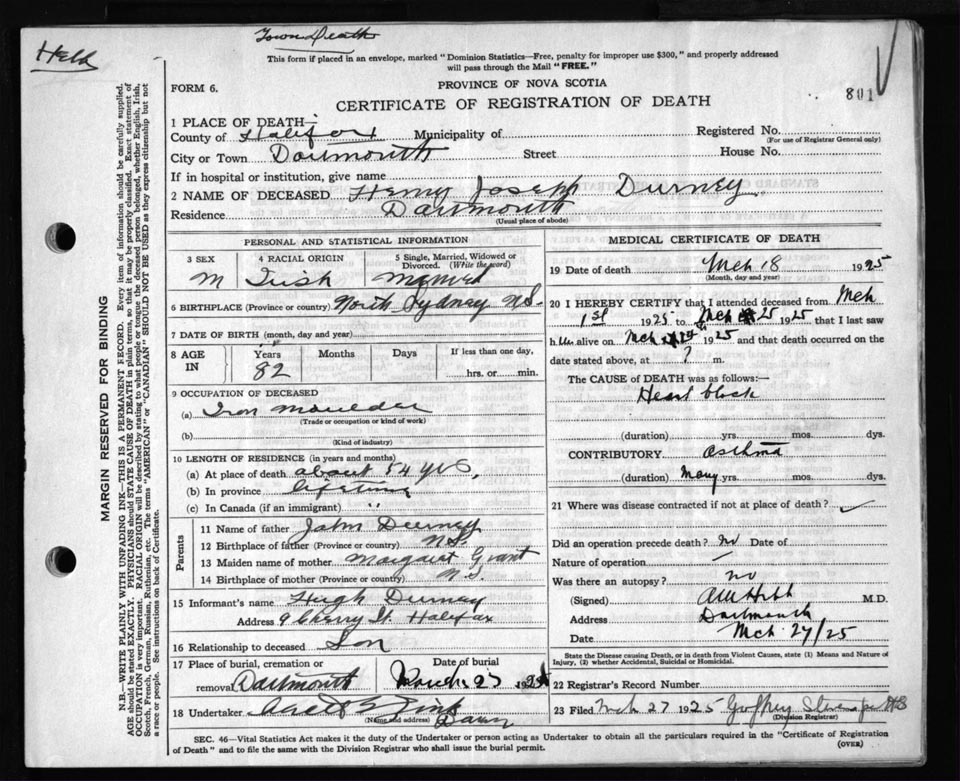 Held
Town Death
This form if placed in an envelope, marked "Dominion Statistics—Free, penalty for improper use $300," and properly addressed
will pass through the Mail "FREE."
FORM 6.
PROVINCE OF NOVA SCOTIA
801
CERTIFICATE OF REGISTRATION OF DEATH
1 PLACE OF DEATH—
County of Halifax Municipality of
Registered No.
(For use of Registrar General only)
City or Town Dartmouth Street House No.
If in hospital or institution, give name
2 NAME OF DECEASED Henry Joseph Durney
Residence Dartmouth
(Usual place of abode)
PERSONAL AND STATISTICAL INFORMATION
3 SEX 4 RACIAL ORIGIN 5 Single, Married, Widowed or
Divorced. (Write the word)
M Irish Married
6 BIRTHPLACE (Province or country) North Sydney N.S.
7 DATE OF BIRTH (month, day and year)
8 AGE IN Years Months Days If less than one day,
82 hrs. or min.
9 OCCUPATION OF DECEASED
(a) Iron Moulder
(Trade or occupation or kind of work)
(b)
(Kind of industry)
10 LENGTH OF RESIDENCE (in years and months)
(a) At place of death about 54 yrs,
(b) In province lifetime
(c) In Canada (if an immigrant) "
Parents
11 Name of father John Durney
12 Birthplace of father (Province or country) N.S.
13 Maiden name of mother Margaret Grant
14 Birthplace of mother (Province or country) N.S.
15 Informant's name Hugh Durney
Address 9 Cherry St. Halifax
16 Relationship to deceased Son
17 Place of burial, cremation or Date of burial
removal Dartmouth March 27 1925
18 Undertaker
(Name and address)
MEDICAL CERTIFICATE OF DEATH
19 Date of death Mch 18 1925
(Month, day and year)
20 I HEREBY CERTIFY that I attended deceased from Mch
1st 1925 to Mch 25 1925 that I last saw
h im alive on Mch 24 1925 and that death occurred on the
date stated above, at ? m.
The CAUSE OF DEATH was as follows:—
Heart block
(duration) yrs. mos. dys.
CONTRIBUTORY asthma
(duration) Many yrs. mos. dys.
21 Where was disease contracted if not at place of death?
Did an operation precede death? no Date of
Nature of operation
Was there an autopsy? no
(Signed) M.D.
Address Dartmouth
Date Mch 27/25
State the Disease causing Death, or in death from Violent Causes, state (1) Means and Nature of
Injury, (2) whether Accidental, Suicidal or Homicidal.
22 Registrar's Record Number
23 Filed Mch 27 1925
(Division Registrar)
SEC. 46—Vital Statistics Act makes it the duty of the Undertaker or person acting as Undertaker to obtain all the particulars required in the "Certificate of Registration
of Death" and to file the same with the Division Registrar who shall issue the burial permit.
(OVER)
MARGIN RESERVED FOR BINDING
N.B.—WRITE PLAINLY WITH UNFADING INK—THIS IS A PERMANENT RECORD. Every item of information should be carefully supplied.
AGE should be stated EXACTLY. PHYSICIANS should STATE CAUSE OF DEATH in plain terms, so that it may be properly classified. Exact statement of
OCCUPATION is very important. RACIAL ORIGIN will be described by stating to what people or tongue the deceased person belonged, whether English, Irish,
Scotch, French, German, Russian, Ruthenian, etc. The terms "AMERICAN" or "CANADIAN" SHOULD NOT BE USED as they express citizenship but not
a race or people. See instructions on back of Certificate.